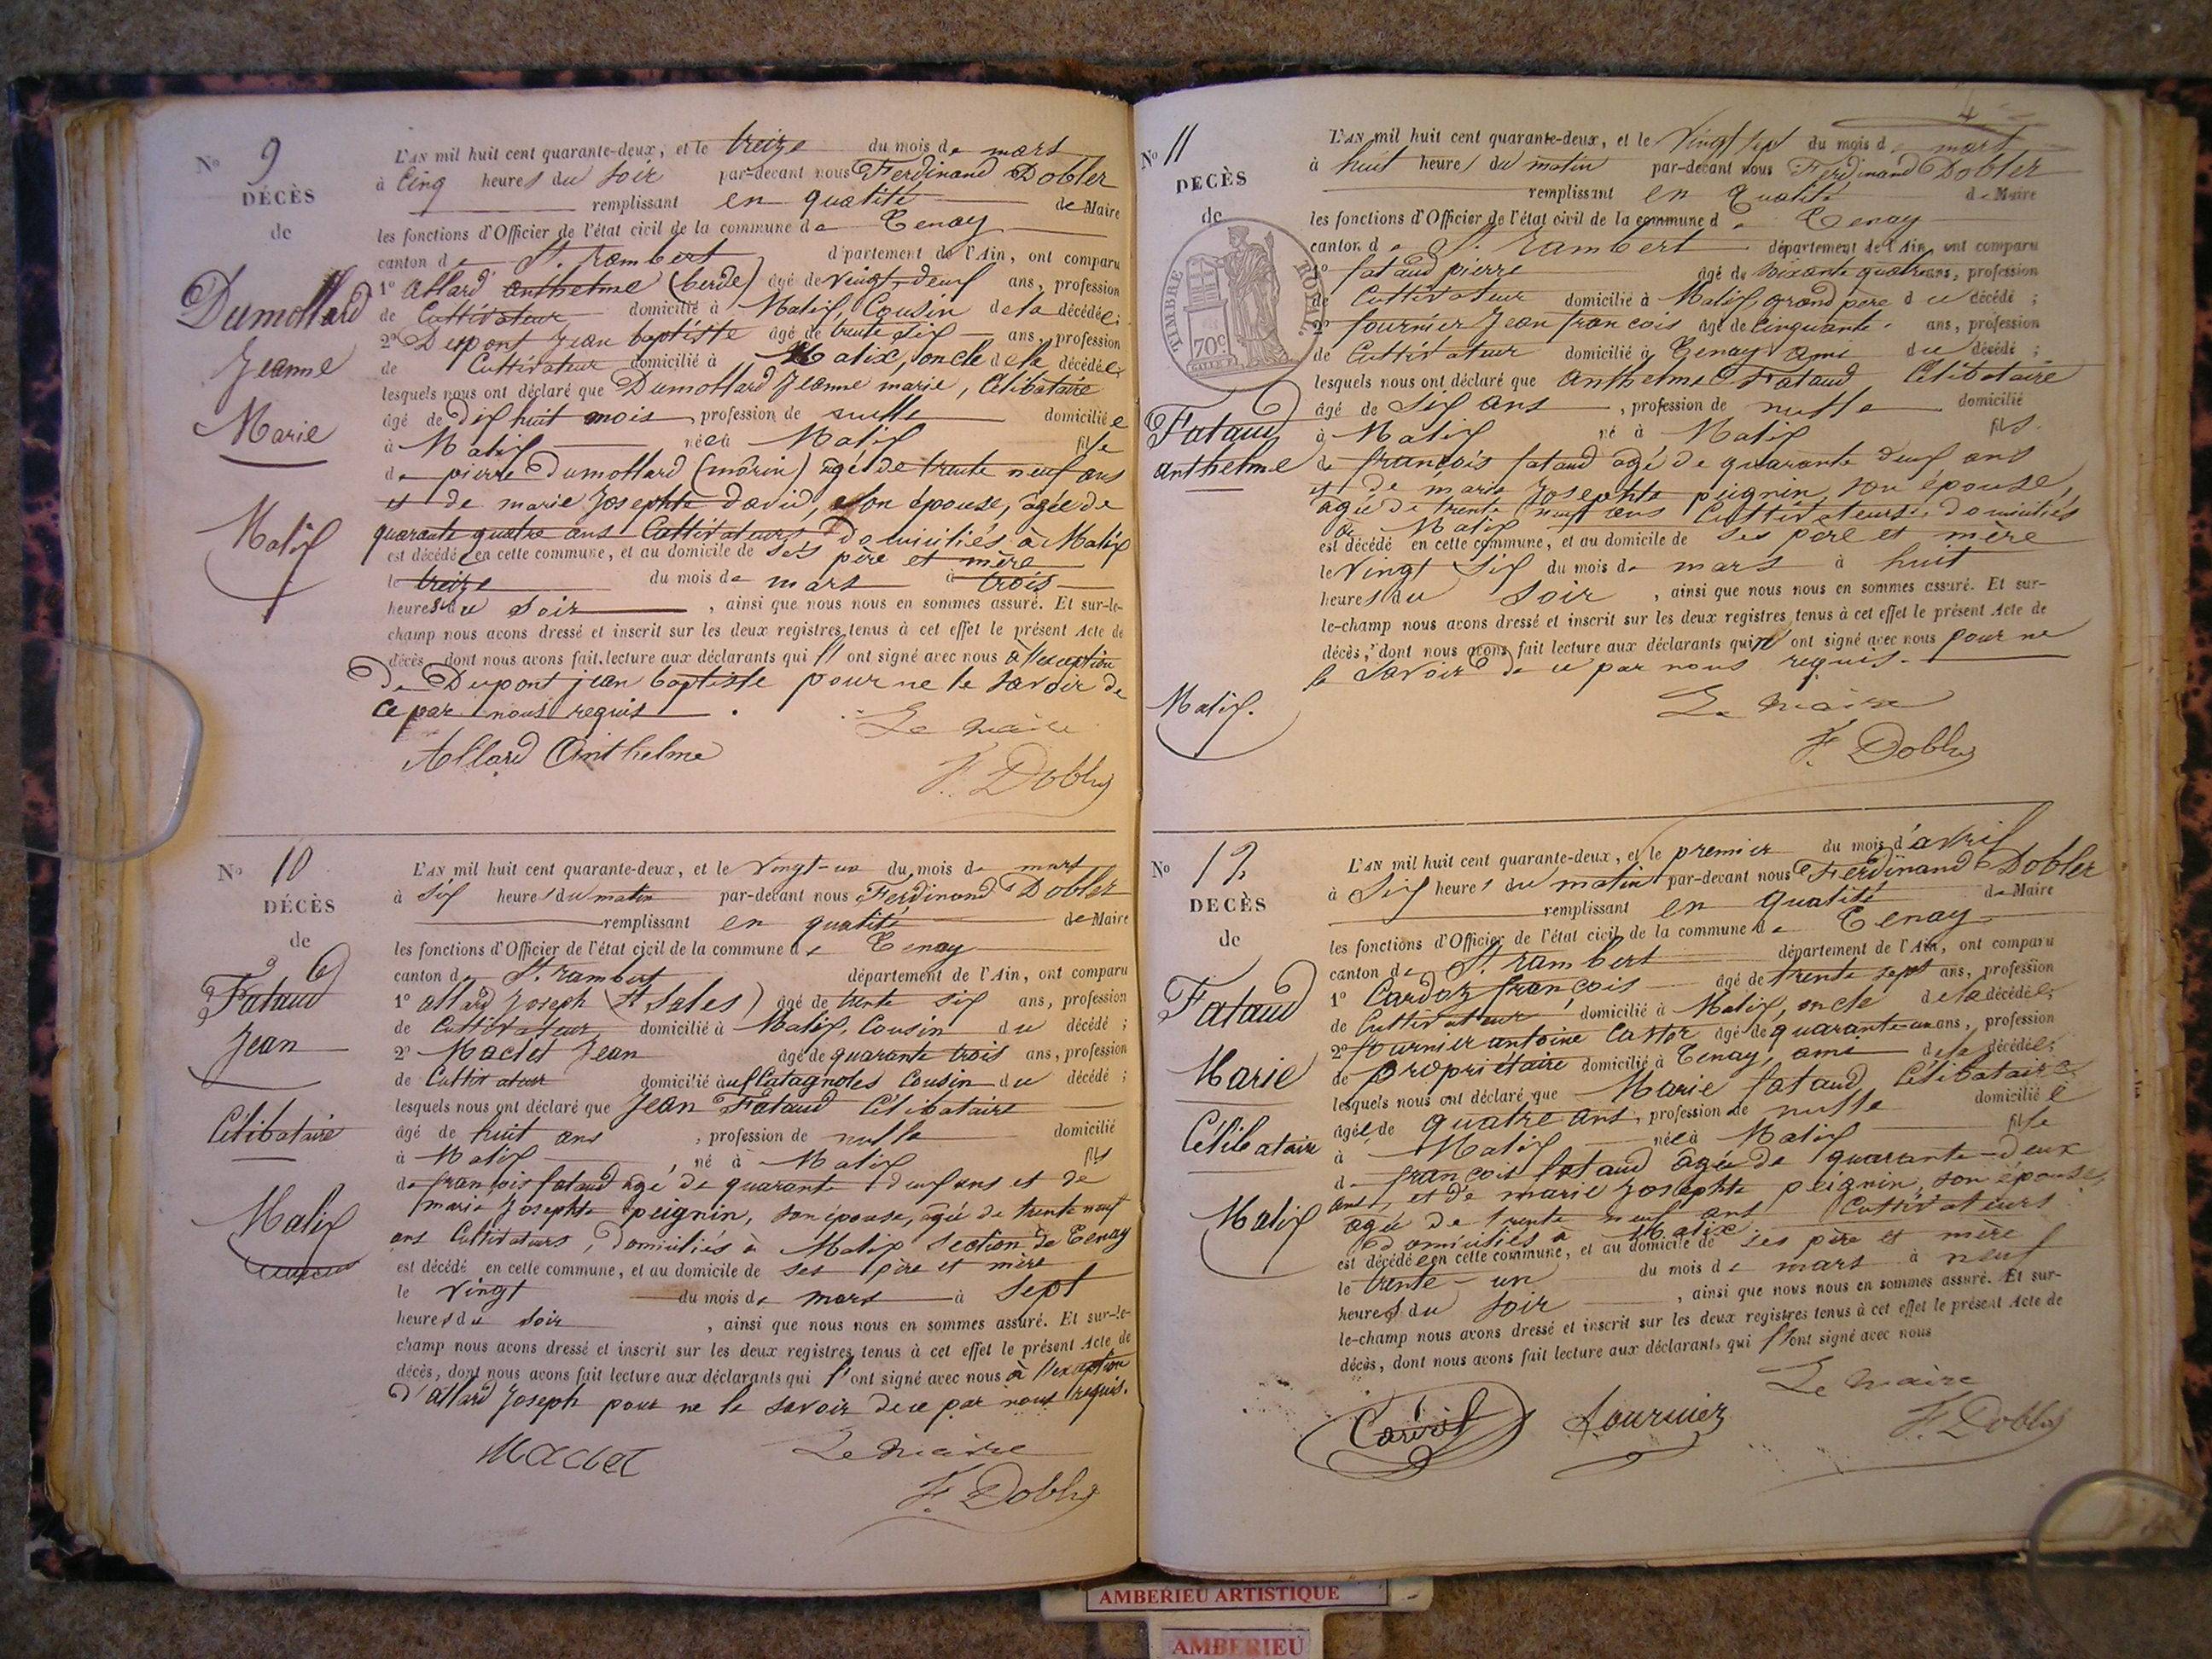 No 9
DÉCÈS
de
Dumollard
Jeanne
Marie
Malix
L'AN mil huit cent quarante-deux, et le treize du mois de mars
à cinq heures du soir par-devant nous Ferdinand Dobler
remplissant en qualité de Maire
les fonctions d'Officier de l'état civil de la commune de Tenay
canton de St. rambert département de l'Ain, ont comparu
1° allard anthelme (berde) âgé de vingt-deux ans, profession
de Cultivateur domicilié à Malix, Cousin de la décédée;
2° Dupont Jean baptiste âgé de trente six ans, profession
de Cultivateur domicilié à Malix, oncle de la décédée;
lesquels nous ont déclaré que Dumollard Jeanne marie, Célibataire
âgé de dix huit mois, profession de nulle domiciliée
à Malix née à Malix fille
de pierre Dumollard (morin) âgé de trente neuf ans
et de marie Josephte david, son épouse, âgée de
quarante quatre ans Cultivateurs Domiciliés à Malix
est décédée en cette commune, et au domicile de ses père et mère
le treize du mois de mars à trois
heures du soir, ainsi que nous nous en sommes assuré. Et sur-le-
champ nous avons dressé et inscrit sur les deux registres tenus à cet effet le présent Acte de
décès, dont nous avons fait lecture aux déclarants qui l'ont signé avec nous à l'exception
De Dupont jean baptiste pour ne le savoir de
ce par nous requis.
Le Maire
Allard Anthelme
F. Dobler
No 10
DÉCÈS
de
Fataud
Jean
Célibataire
Malix
L'AN mil huit cent quarante-deux, et le vingt-un du mois de mars
à six heures du matin par-devant nous Ferdinand Dobler
remplissant en qualité de Maire
les fonctions d'Officier de l'état civil de la commune de Tenay
canton de St. rambert département de l'Ain, ont comparu
1° allard Joseph (St Sales) âgé de trente six ans, profession
de Cultivateur domicilié à Malix, Cousin du décédé;
2° Maclet Jean âgé de quarante trois ans, profession
de Cultivateur domicilié aux Catagnoles Cousin du décédé;
lesquels nous ont déclaré que Jean Fataud Célibataire
âgé de huit ans, profession de nulle domicilié
à Malix, né à Malix fils
de françois fataud âgé de quarante deux ans et de
marie Josephte peignin, son épouse, âgée de trente neuf
ans Cultivateurs, domiciliés à Malix section de Tenay
est décédé en cette commune, et au domicile de ses père et mère
le vingt du mois de mars à sept
heures du soir, ainsi que nous nous en sommes assuré. Et sur-le-
champ nous avons dressé et inscrit sur les deux registres tenus à cet effet le présent Acte de
décès, dont nous avons fait lecture aux déclarants qui l'ont signé avec nous à l'exception
d'allard Joseph pour ne le savoir de ce par nous requis.
Maclet Le Maire
F. Dobler
4
No 11
DECÈS
de
TIMBRE ROYAL
70c
Fataud
anthelme
Malix.
L'AN mil huit cent quarante-deux, et le vingt sept du mois de mars
à huit heures du matin par-devant nous Ferdinand Dobler
remplissant en qualité de Maire
les fonctions d'Officier de l'état civil de la commune de Tenay
canton de St. rambert département de l'Ain, ont comparu
1° fataud pierre âgé de soixante quatre ans, profession
de Cultivateur domicilié à Malix, grand père du décédé;
2° fournier Jean françois âgé de cinquante ans, profession
de Cultivateur domicilié à Tenay ami du décédé;
lesquels nous ont déclaré que anthelme Fataud Célibataire
âgé de six ans, profession de nulle domicilié
à Malix né à Malix fils
de françois fataud âgé de quarante deux ans
et de marie Josephte peignin, son épouse,
âgée de trente neuf ans Cultivateurs, domiciliés
à Malix
est décédé en cette commune, et au domicile de ses père et mère
le vingt six du mois de mars à huit
heures du soir, ainsi que nous nous en sommes assuré. Et sur-
le-champ nous avons dressé et inscrit sur les deux registres tenus à cet effet le présent Acte de
décès, dont nous avons fait lecture aux déclarants qui n'ont signé avec nous pour ne
le savoir de ce par nous requis.
Le Maire
F. Dobler
No 12
DECÈS
de
Fataud
Marie
Célibataire
Malix
L'AN mil huit cent quarante-deux, et le premier du mois d'avril
à six heures du matin par-devant nous Ferdinand Dobler
remplissant en qualité de Maire
les fonctions d'Officier de l'état civil de la commune de Tenay
canton de St. rambert département de l'Ain, ont comparu
1° françois âgé de trente sept ans, profession
de Cultivateur domicilié à Malix, oncle de la décédée;
2° fournier antoine Castor âgé de quarante-un ans, profession
de propriétaire domicilié à Tenay, ami de la décédée;
lesquels nous ont déclaré que Marie fataud Célibataire
âgée de quatre ans, profession de nulle domiciliée
à Malix née à Malix fille
de françois fataud âgée de quarante-deux
ans, et de marie Josephte peignin, son épouse,
âgée de trente neuf ans Cultivateurs
domiciliés à Malix
est décédée en cette commune, et au domicile de ses père et mère
le trente-un du mois de mars à neuf
heures du soir, ainsi que nous nous en sommes assuré. Et sur-
le-champ nous avons dressé et inscrit sur les deux registres tenus à cet effet le présent Acte de
décès, dont nous avons fait lecture aux déclarants qui l'ont signé avec nous
Le Maire
fournier F. Dobler
AMBERIEU ARTISTIQUE
AMBERIEU